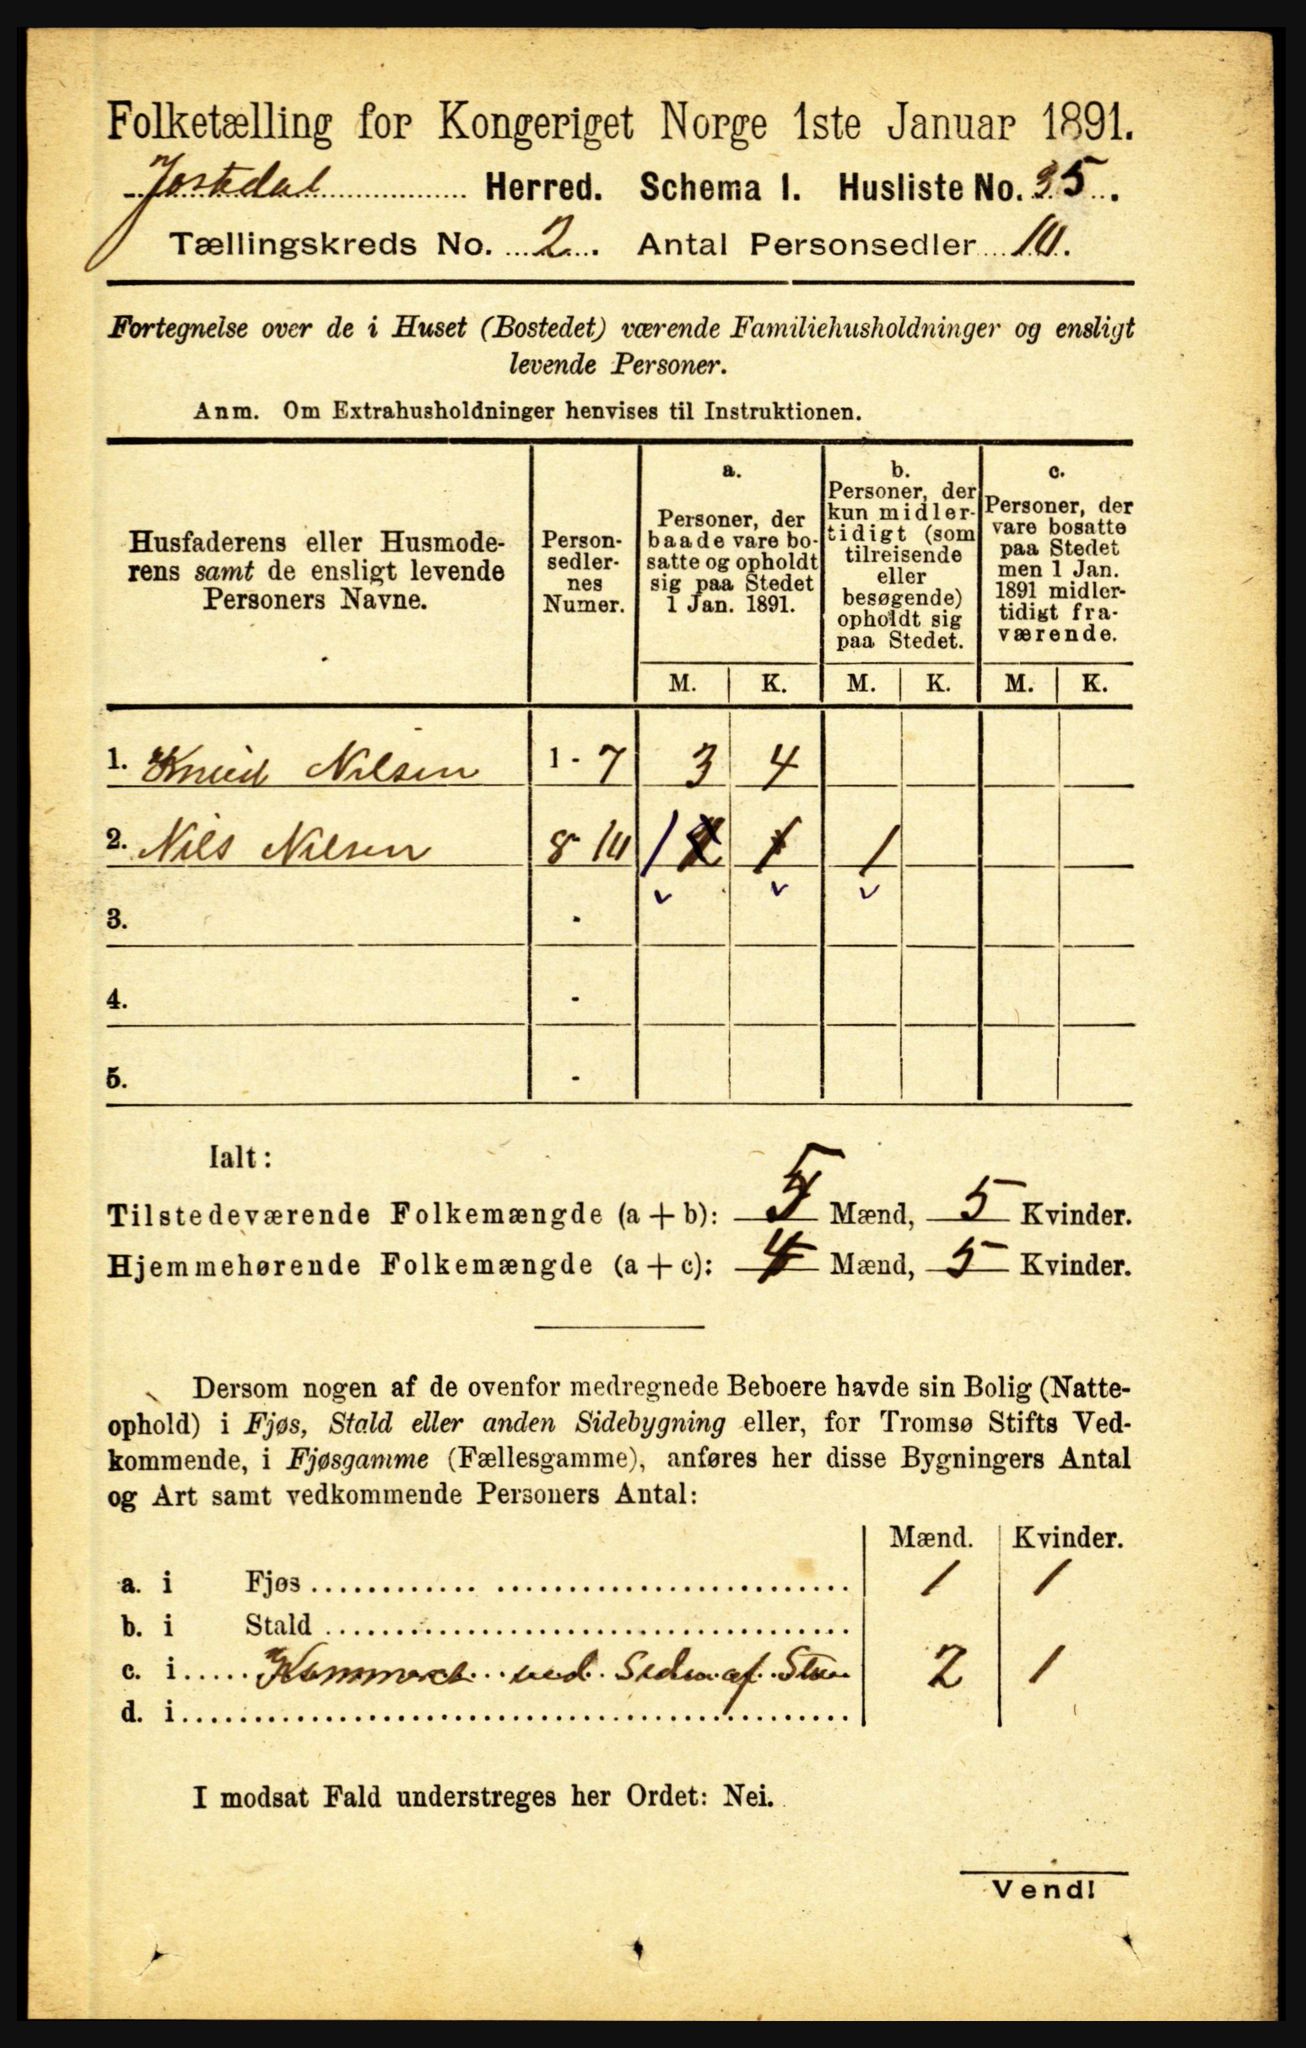 Folketælling for Kongeriget Norge 1ste Januar 1891.
Jostedal Herred. Schema 1. Husliste No. 35.
Tællingskreds No. 2. Antal Personsedler 10.
Fortegnelse over de i Huset (Bostedet) værende Familiehusholdninger og ensligt
levende Personer.
Anm. Om Extrahusholdninger henvises til Instruktionen.
Husfaderens eller Husmode-
rens samt de ensligt levende
Personers Navne.
Person-
sedler-
nes
Numer.
a.
Personer, der
baade vare bo-
satte og opholdt
sig paa Stedet
1 Jan. 1891.
b.
Personer, der
kun midler-
tidigt (som
tilreisende
eller
besøgende)
opholdt sig
paa Stedet.
c.
Personer, der
vare bosatte
paa Stedet
men 1 Jan.
1891 midler-
tidigt fra-
værende.
M. K. M. K. M. K.
1. Knud Nilsen 1 - 7 3 4
2. Nils Nilsen 8 10 1 1 1
3. -
4. -
5. -
Ialt:
Tilstedeværende Folkemængde (a + b): 5 Mænd, 5 Kvinder.
Hjemmehørende Folkemængde (a + c): 4 Mænd, 5 Kvinder.
Dersom nogen af de ovenfor medregnede Beboere havde sin Bolig (Natte-
ophold) i Fjøs, Stald eller anden Sidebygning eller, for Tromsø Stifts Ved-
kommende, i Fjøsgamme (Fællesgamme), anføres her disse Bygningers Antal
og Art samt vedkommende Personers Antal:
Mænd. Kvinder.
a. i Fjøs 1 1
b. i Stald
c. i ved Siden af 2 1
d. i
I modsat Fald understreges her Ordet: Nei.
Vend!